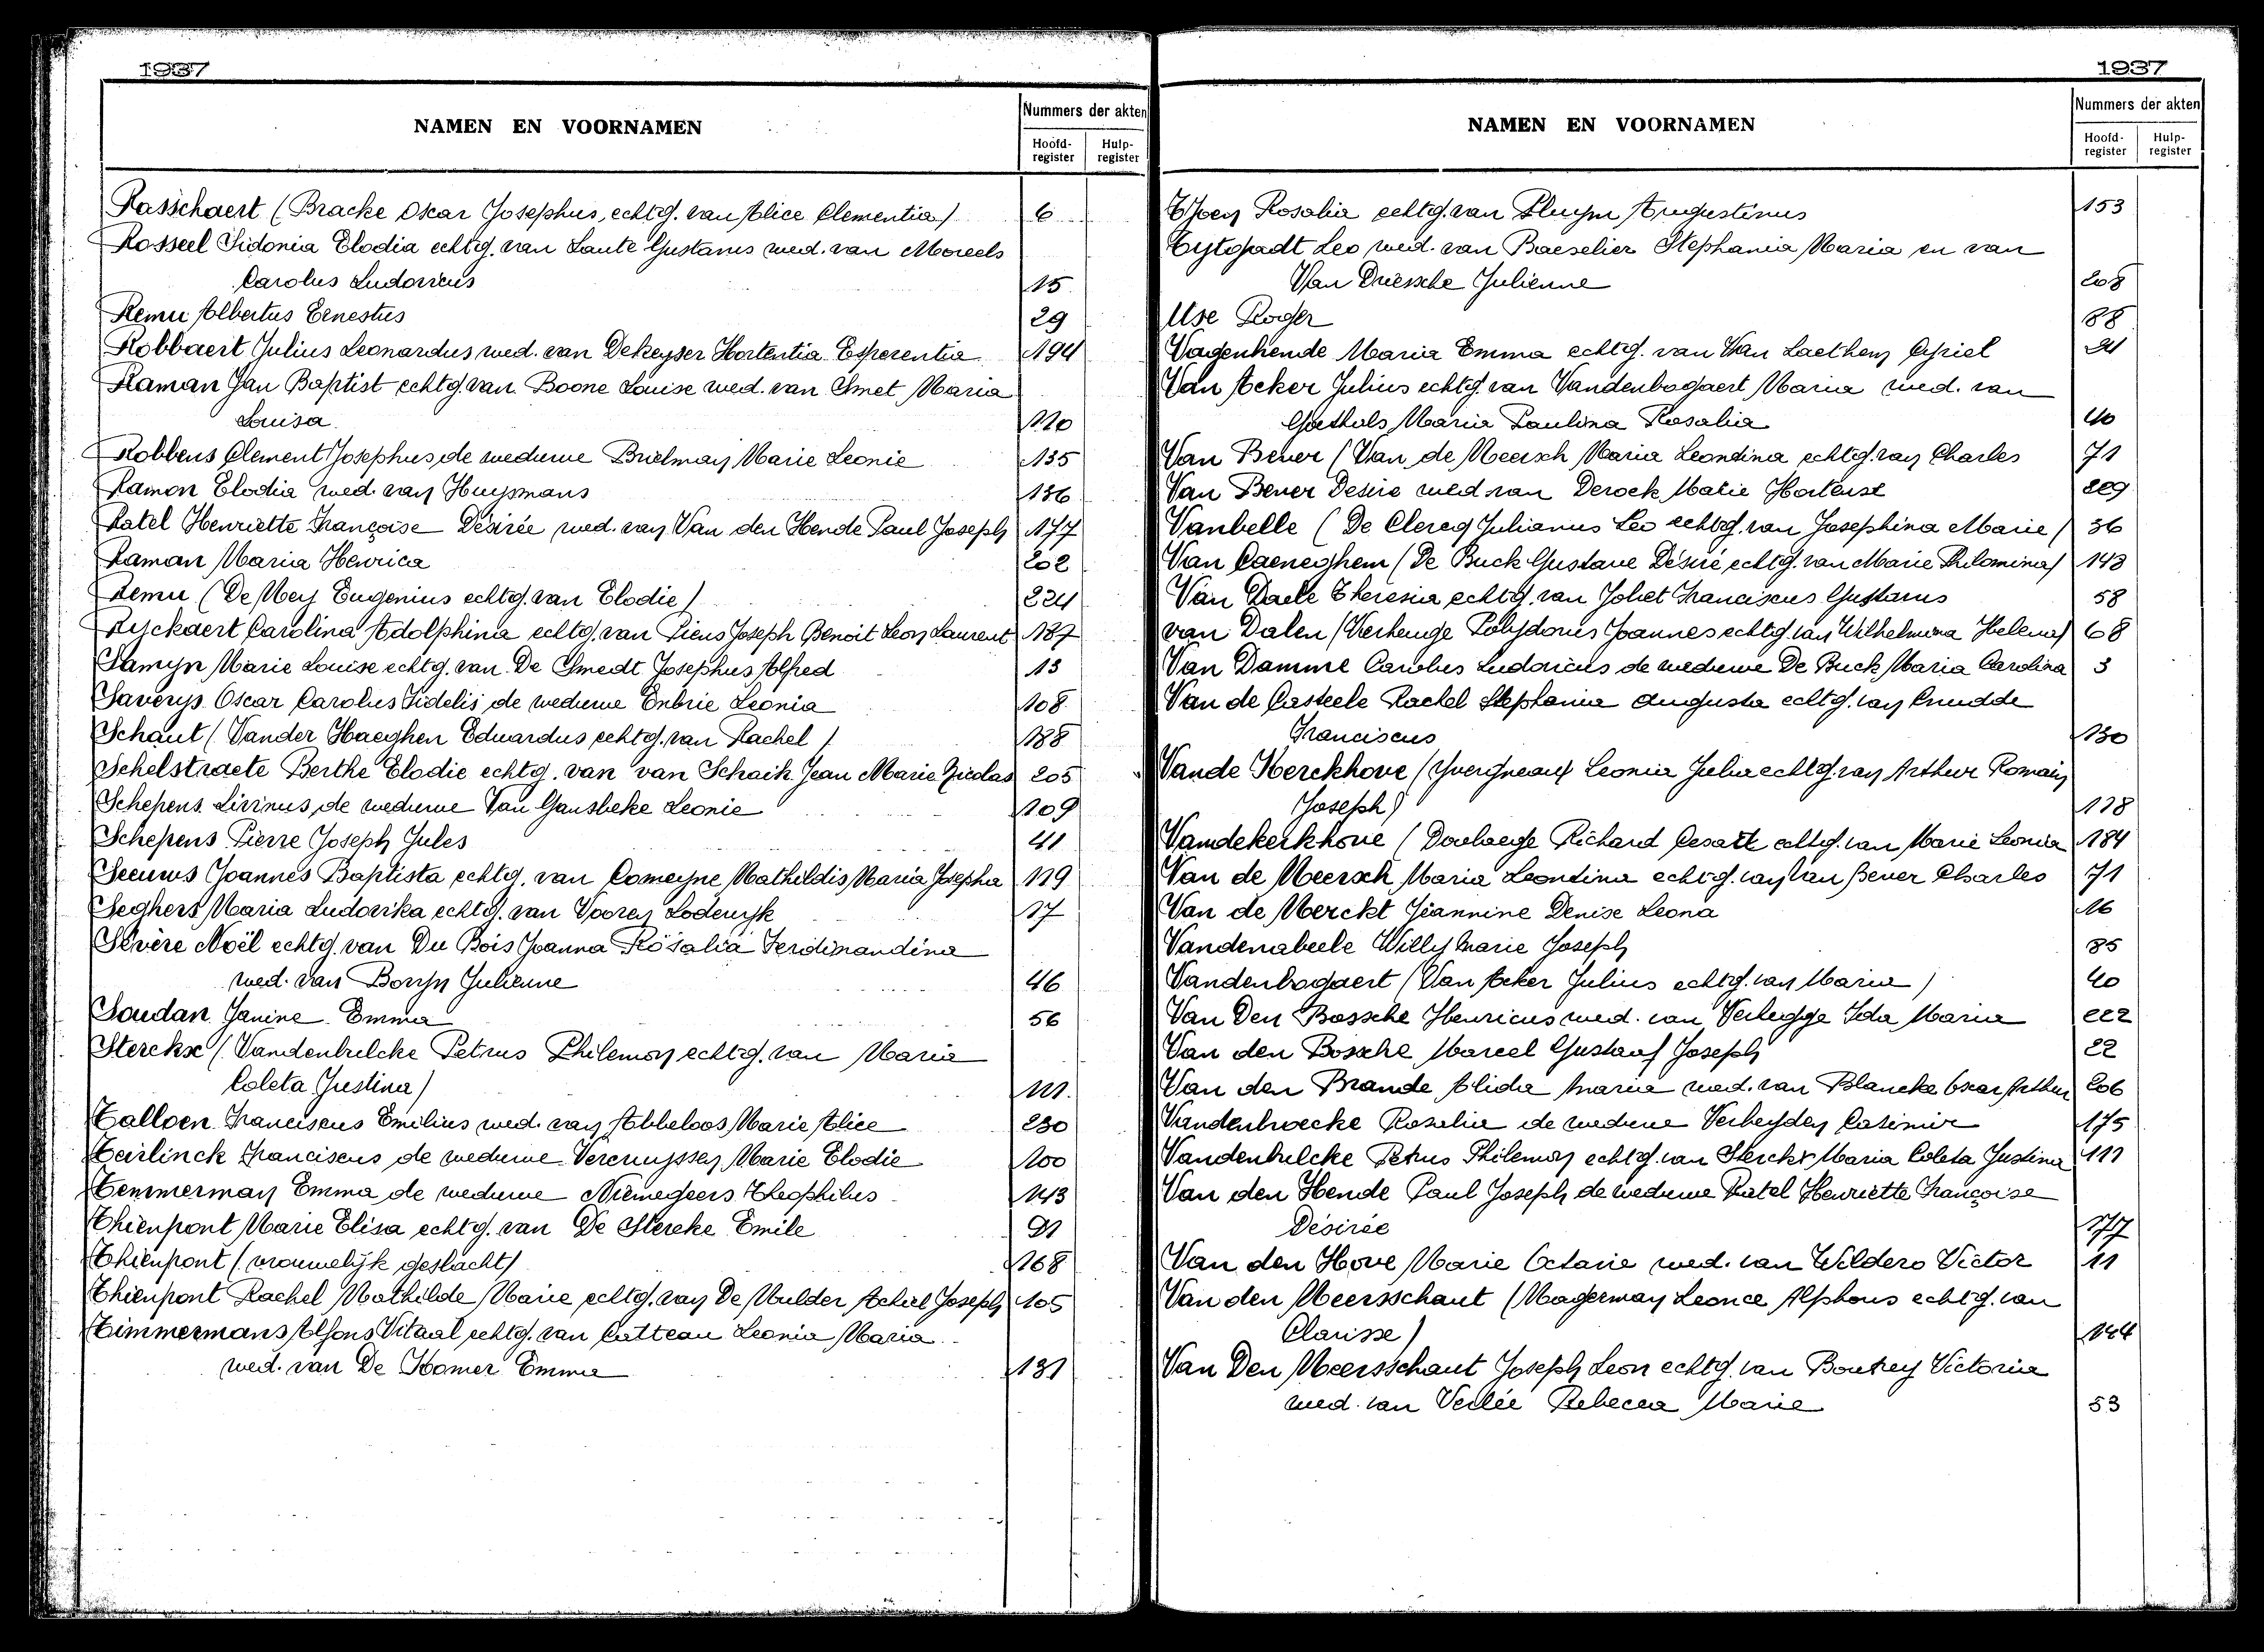 1937
NAMEN EN VOORNAMEN
Nummers der akten
Hoofd-register
Hulp-register
Rasschaert (Bracke Oscar Josephus, echtg. van Alice Clementia) 6
Rosseel Sidonia Elodia echtg. van Laute Gustavus wed. van Moreels
Carolus Ludovicus 15
Remu Albertus Ernestus 29
Robbaert Julius Leonardus wed. van Dekeyser Hortentia Esperentia 194
Raman Jan Baptist echtg. van Boone Louise wed. van Smet Maria
Louisa 110
Robbens Clement Josephus de weduwe Brielman Marie Leonie 135
Ramon Elodia wed. van Huysmans 136
Ratel Henriette Françoise Désirée wed. van Van den Hende Paul Joseph 177
Raman Maria Henrica 202
Remu (De Mey Eugenius echtg. van Elodie) 224
Ryckaert Carolina Adolphina echtg. van Piens Joseph Benoit Leon Laurent 187
Samyn Marie Louise echtg. van De Smedt Josephus Alfred 13
Saverys Oscar Carolus Fidelis de weduwe Enbrie Leonia 108
Schaut (Vander Haeghen Eduardus echtg. van Rachel) 188
Schelstraete Berthe Elodie echtg. van van Schaik Jean Marie Nicolas 205
Schepens Livinus de weduwe Van Gansbeke Leonie 109
Schepens Pierre Joseph Jules 41
Seeuws Joannes Baptista echtg. van Comeyne Mathildis Maria Josepha 119
Seghers Maria Ludovika echtg. van Vooren Lodewijk 17
Sevère Noël echtg. van Du Bois Joanna Rosalia Ferdinandina
wed. van Boryn Julienne 46
Soudan Janine Emma 56
Sterckx (Vandenbulcke Petrus Philemon echtg. van Maria
Coleta Justina) 111
Talloen Franciscus Emilius wed. van Abbeloos Marie Alice 230
Teirlinck Franciscus de weduwe Vercruyssen Marie Elodie 100
Temmerman Emma de weduwe Niemegeers Theophilus 143
Thienpont Marie Elisa echtg. van De Stercke Emile 91
Thienpont (vrouwelijk geslacht) 168
Thienpont Rachel Mathilde Marie echtg. van De Mulder Achiel Joseph 105
Timmermans Alfons Vitaal echtg. van Catteau Leonia Maria
wed. van De Hamer Emma 131
1937
NAMEN EN VOORNAMEN
Nummers der akten
Hoofd-register
Hulp-register
Rosalia echtg. van Pluym Augustinus 153
Tytgadt Leo wed. van Baeselier Stephania Maria en van
Van Driessche Julienne 208
Use Roger 88
Vagenhende Maria Emma echtg. van Van Laethem Cyriel 21
Van Acker Julius echtg. van Vandenbogaert Maria wed. van
Goethals Maria Paulina Rosalia 40
Van Bever (Van de Meersch Maria Leondina echtg. van Charles 71
Van Bever Desire wed. van Derock Marie Hortense 229
Vanbelle (De Clercq Julianus Leo echtg. van Josephina Marie) 36
Van Caeneghem (De Buck Gustave Désiré echtg. van Marie Philomina) 143
Van Daele Theresia echtg. van Joliet Franciscus Gustavus 58
van Dalen (Verhenge Polydorus Joannes echtg. van Wilhelmina Helena) 68
Van Damme Carolus Ludovicus de weduwe De Buck Maria Carolina 3
Van de Casteele Rachel Stephanie Augusta echtg. van Cnudde
Franciscus 130
Vande Kerckhove (Yvergneaux Leonia Julia echtg. van Arthur Romain
Joseph) 118
Vandekerkhove (Dorlaege Richard Cesar echtg. van Marie Leonia 184
Van de Meersch Maria Leondina echtg. van Van Bever Charles 71
Van de Merckt Jeannine Denise Leona 16
Vandenabeele Willy Marie Joseph 85
Vandenbogaert (Van Acker Julius echtg. van Maria) 40
Van Den Bossche Henricus wed. van Verhegge Ida Maria 222
Van den Bossche Marcel Gustaaf Joseph 22
Van den Brande Alida Maria wed. van Blancke Oscar Arthur 206
Vandenbroecke Rosalia de weduwe Verheyden Casimir 175
Vandenbulcke Petrus Philemon echtg. van Sterckx Maria Coleta Justina 111
Van den Hende Paul Joseph de weduwe Ratel Henriette Françoise
Désirée 177
Van den Hove Marie Octavie wed. van Wilders Victor 11
Van den Meersschaut (Magerman Leonce Alphons echtg. van
Clarisse) 144
Van Den Meersschaut Joseph Leon echtg. van Boutrey Victoria
wed. van Verlée Rebecca Marie 53